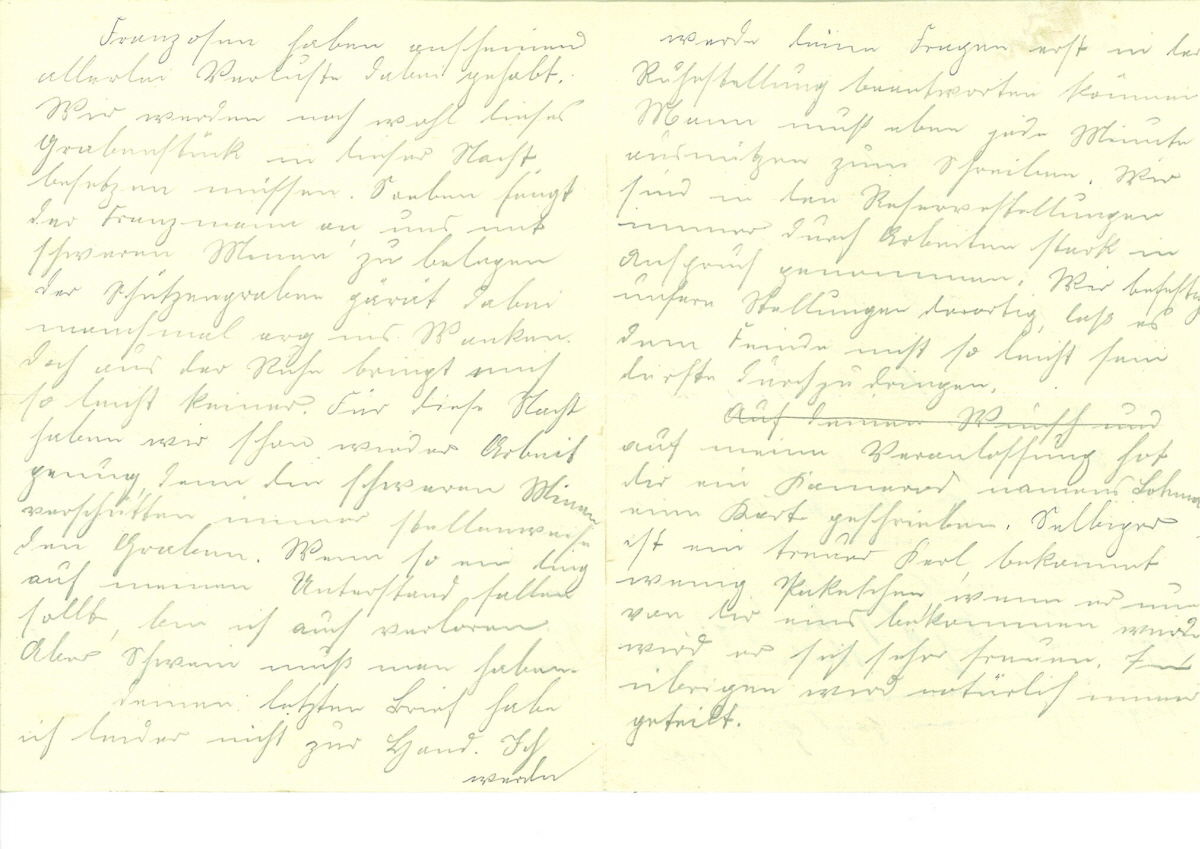 Franzosen haben anscheinend
allerlei Verluste dabei gehabt.
Wir werden noch wohl dieses
Grabenstück in dieser Nacht
besetzen müssen. Soeben fängt
der Franzmann an, uns mit
schweren Minen zu belegen
der Schützengraben gärät dabei
manchmal arg ins Wanken.
Doch aus der Ruhe bringt mich
so leicht keiner. Für diese Nacht
haben wir schon wieder Arbeit
genug, denn die schweren Minen
verschütten immer stellenweise
den Graben. Wenn so ein Ding
auf meinen Unterstand fallen
sollte, bin ich auch verloren.
Aber Schwein muß man haben.
Deinen letzten Brief habe
ich leider nicht zur Hand. Ich
werde
werde deine Fragen erst in der
Ruhestellung beantworten können
Mann muß eben jede Minute
ausnützen zum Schreiben. Wir
sind in den Reservestellungen
immer durch Arbeiten stark in
Anspruch genommen. Wir befestig
unsere Stellungen derartig, daß es
dem Feinde nicht so leicht sein
dürfte durchzudringen.
Auf deinen Wunsch und
auf meine Veranlassung hat
dir ein Kamerad namens
eine Kart geschrieben. Selbiger
ist ein treuer Kerl, bekommt
wenig Paketchen, wenn er nun
von dir eins bekommen wird
wird er sich sehr freuen. Im
übrigen wird natürlich immer
geteilt.